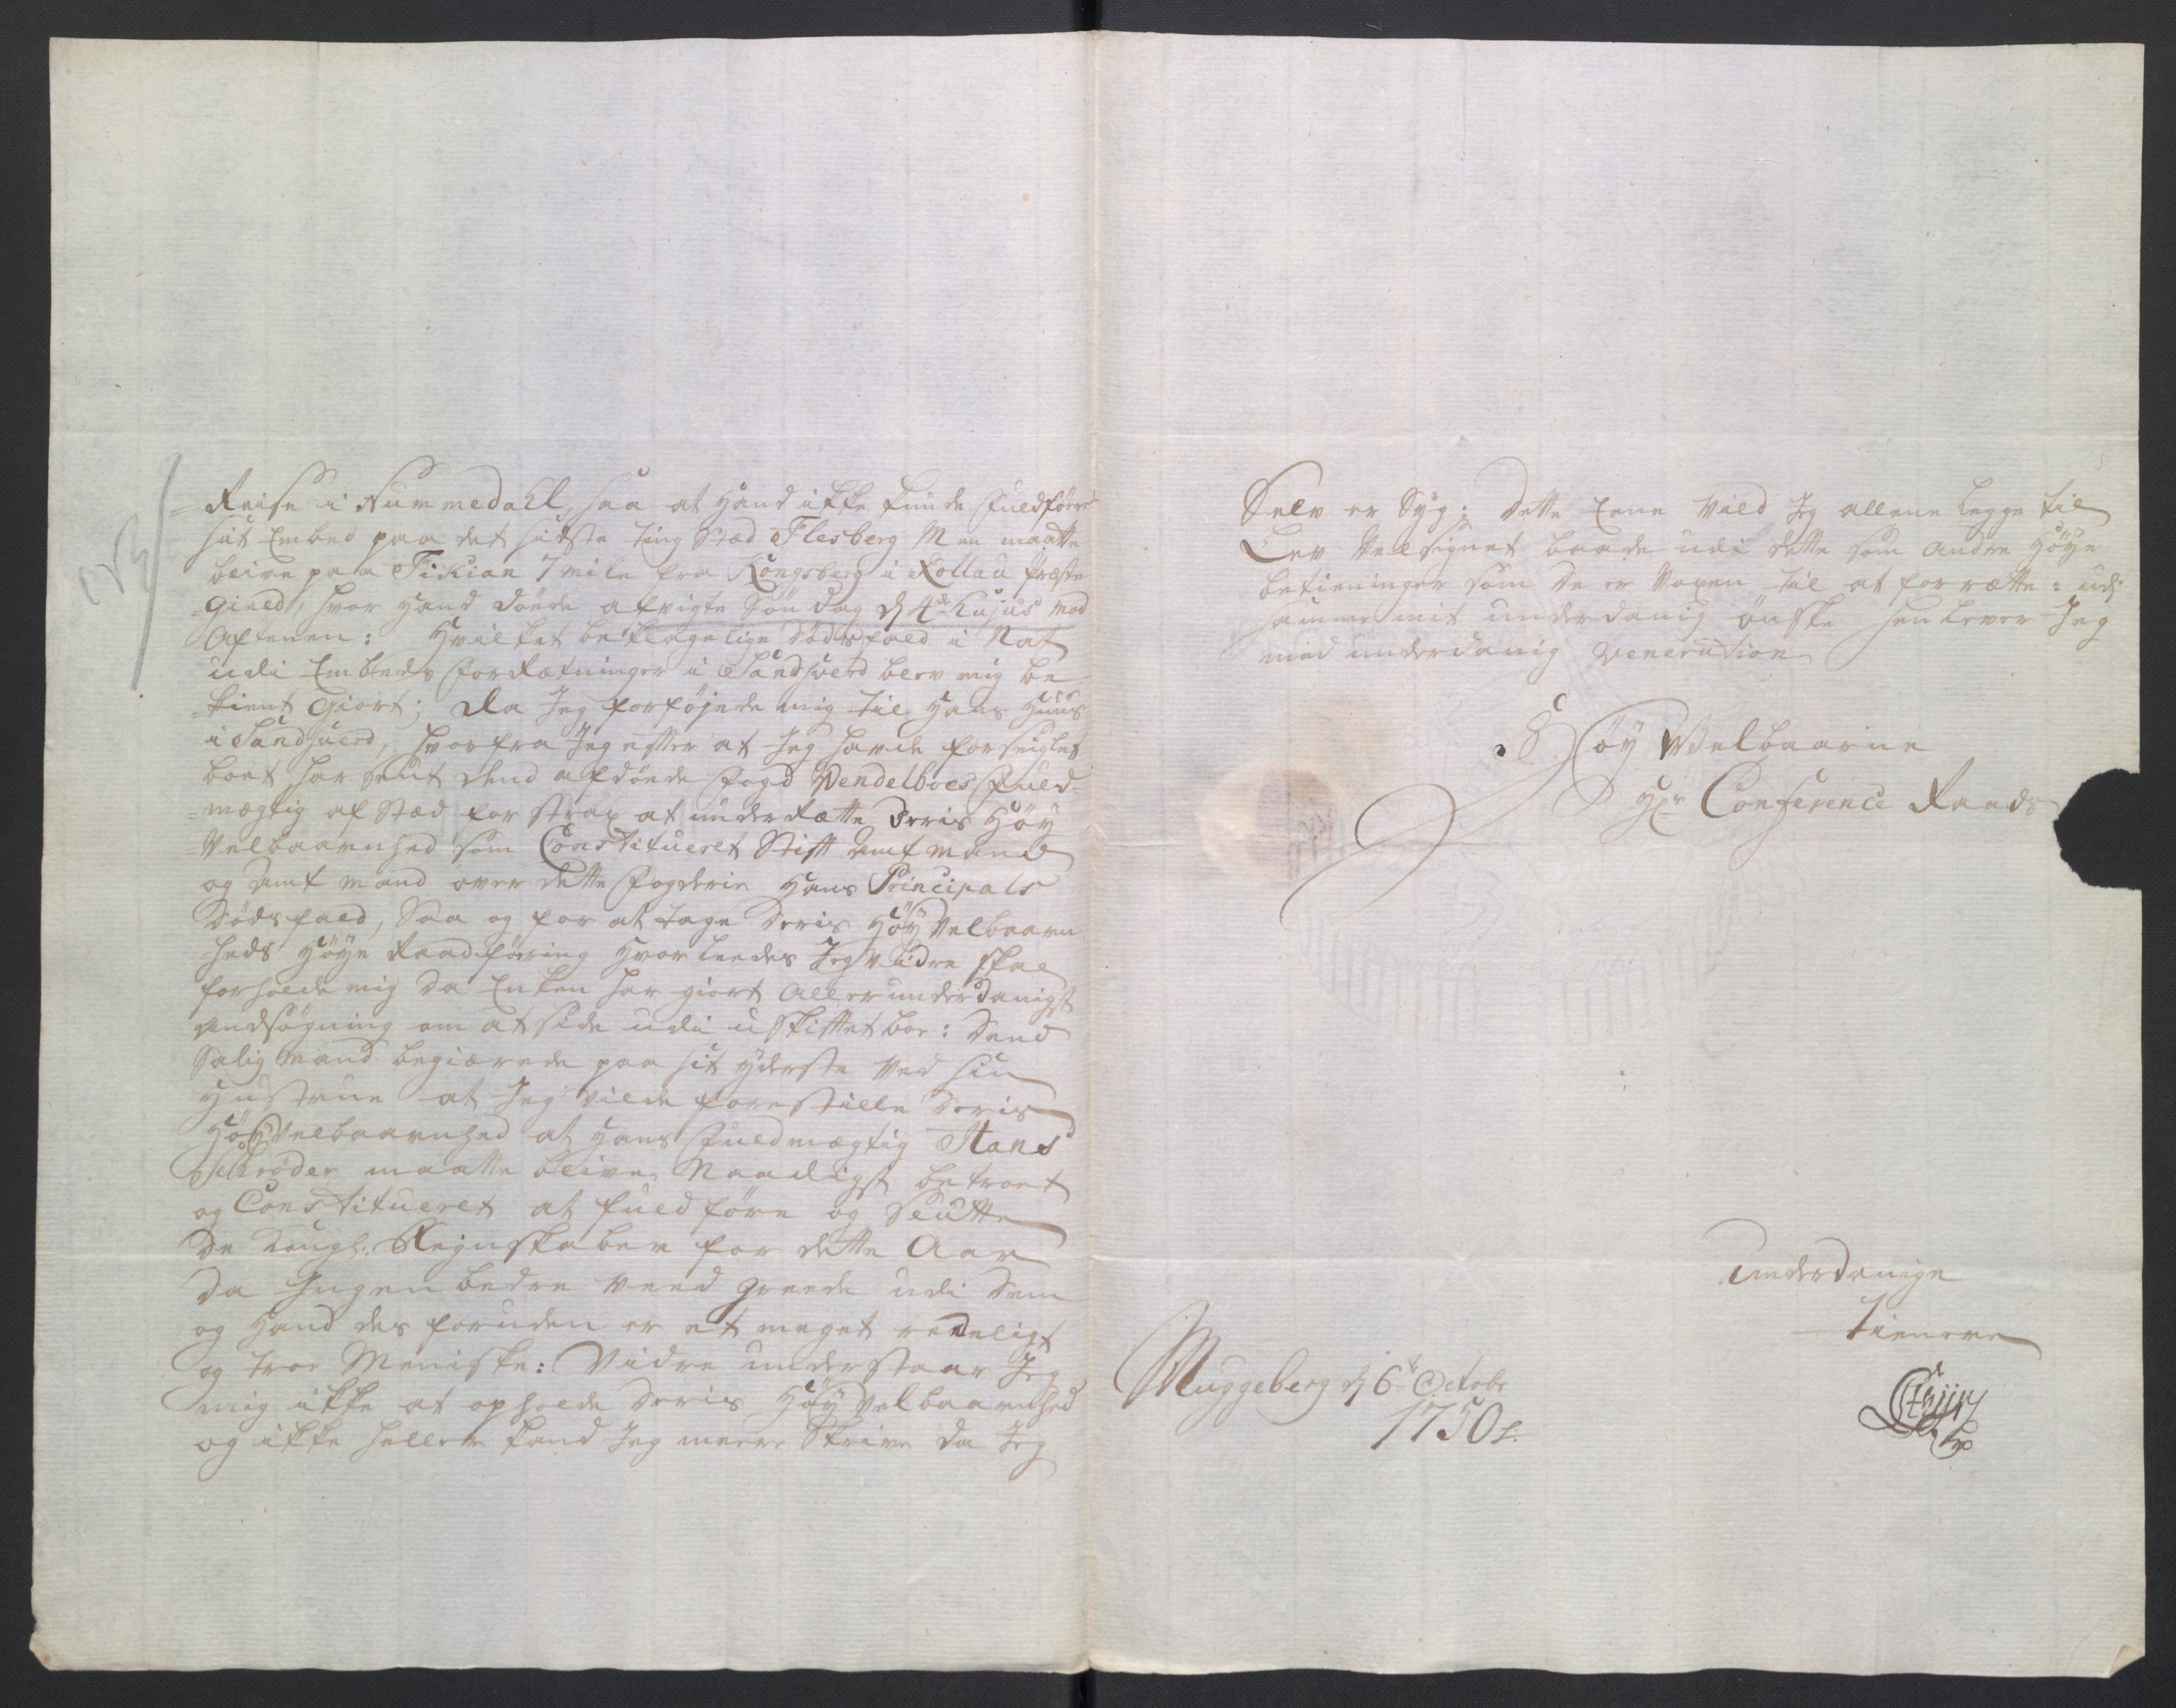 NB
= Reise i Nummedahl, saa at Hand ikke kunde Fuldføre
sit Embed paa det sidste ting Stæd Flesberg Men maatte
blive paa Fikian 7 mile fra Kongsberg i Rollau Præste
-Gield, hvor Hand døede afvigte Søndag d 4de Hujus mod
Aftenen: Hvilket beklagelige dødsfald i Nat
udi Embeds Forrætninger i Sandsverd blev mig be-
-kient Giort; da Jeg forføjede mig til Hans Huus
i Sandsuerd, hvorfra Jeg efter at Jeg havde forseiglet
boet har sent dend afdøde Fogd Wendelboes Fuld-
-mægtig af Stæd for strax at underrætte Deris Høy
-Velbaarnhed som Constitueret Stift Amtmand
og Amt mand over dette Fogderie Hans Principals
Dødsfald, Saa og for at tage Deris HøyVelbaarn
-heds Høye Raadføring Hvorleedes Jeg vidre skal
forholde mig da Enken har giort Allerunderdanigst
Andsøgning om at side udi uskiftet boe: Dend
Salig Mand begiærede paa sit yderste Ved sin
Hustrue at Jeg vilde forestille Deris
HøyVelbaarnhed at Hans Fuldmægtig Hans
Schrøder maatte blive Naadigst betroet
og Constitueret at fuldføre og Slutte
De Kongl. Regnskaber for dette Aar
da Ingen bedre veed Greede udi dem
og Hand des foruden er et meget redeligt
og troe Meniske: Vidre understaar Jeg
mig ikke at opholde Deris HøyVelbaarnhed
og ikke heller kand Jeg meere Skrive da Jeg
Selv er Syg: Dette Eene Vild Jeg allene legge til
Lev Velsignet baade udi dette som andre Høye
betieninger som De er Voxen til at forrætte: udj
samme mit underdanig ønske henlever Jeg
med underdanig Veneration
Høy Welbaarne
Hr Conference Raads
underdanige
tienere
Muggeberg d 6te Octobr
1750.